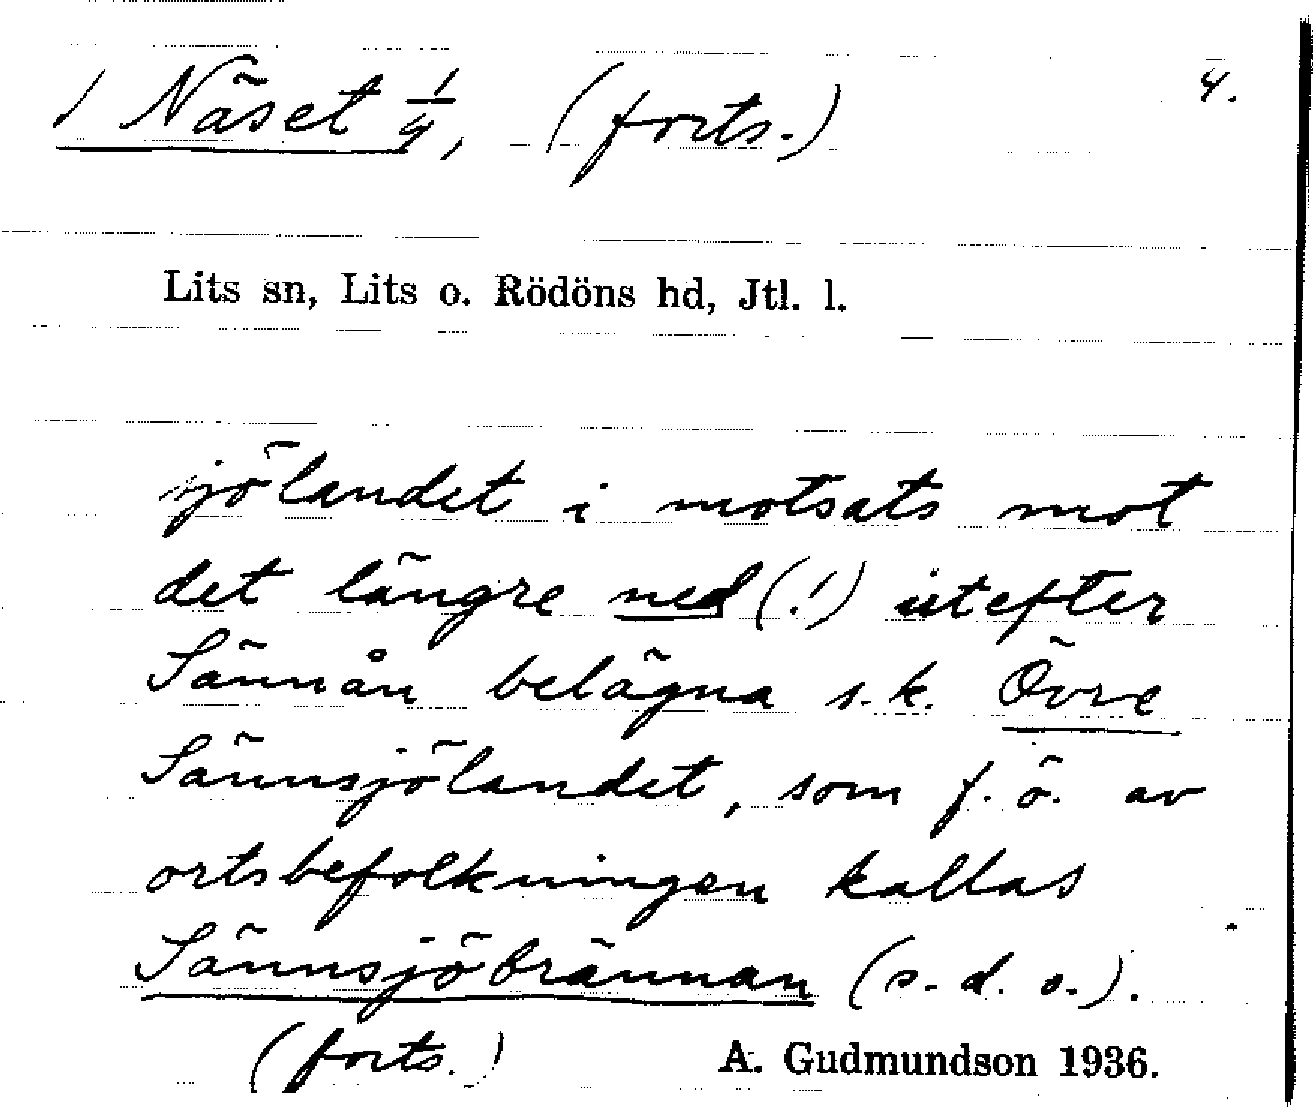 / Näset 1/4, (forts.) 4.
Lits sn, Lits o. Rödöns hd, Jtl. l.
sjölandet i motsats mot
det längre ned (!) utefter
Sännån belägna s.k. Övre
Sännsjölandet, som f.ö. av
ortsbefolkningen kallas
Sännsjöbrännan (s.d.o.).
(forts.) A. Gudmundson 1936.